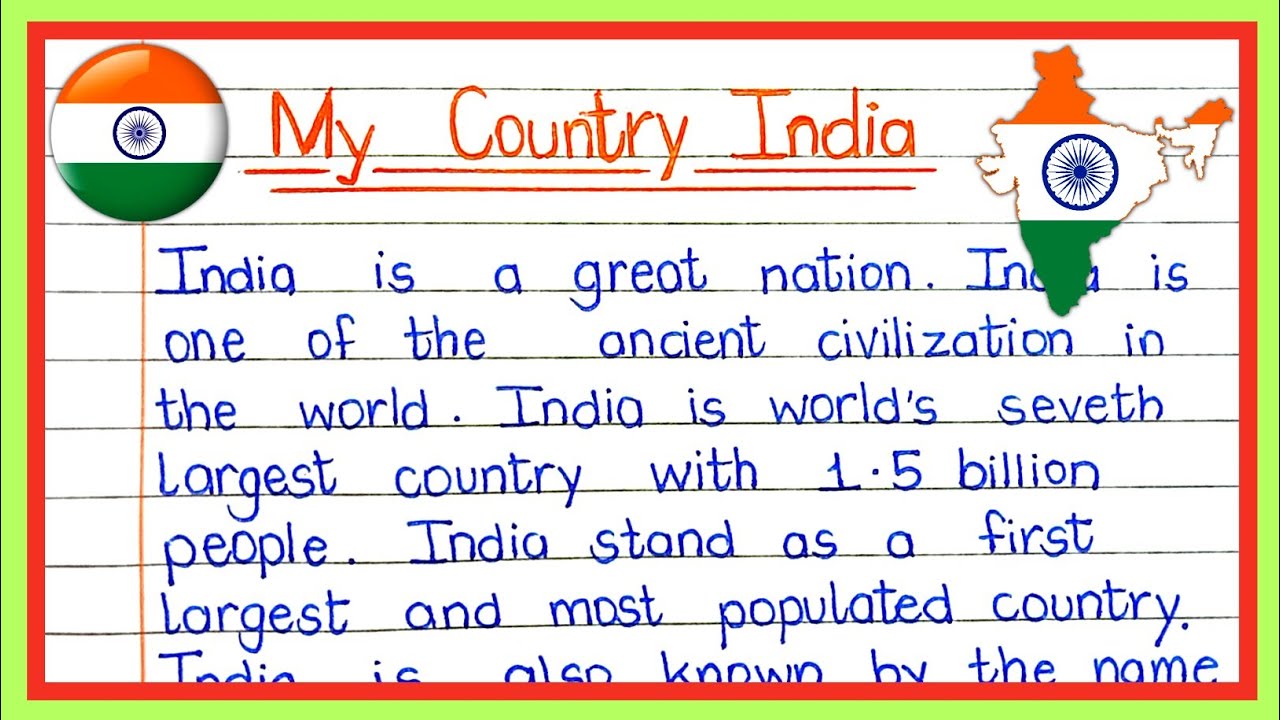 My Country India
India is a great nation. India is
one of the ancient civilization in
the world. India is world's seveth
largest country with 1.5 billion
people. India stand as a first
largest and most populated country.
India is also known by the name